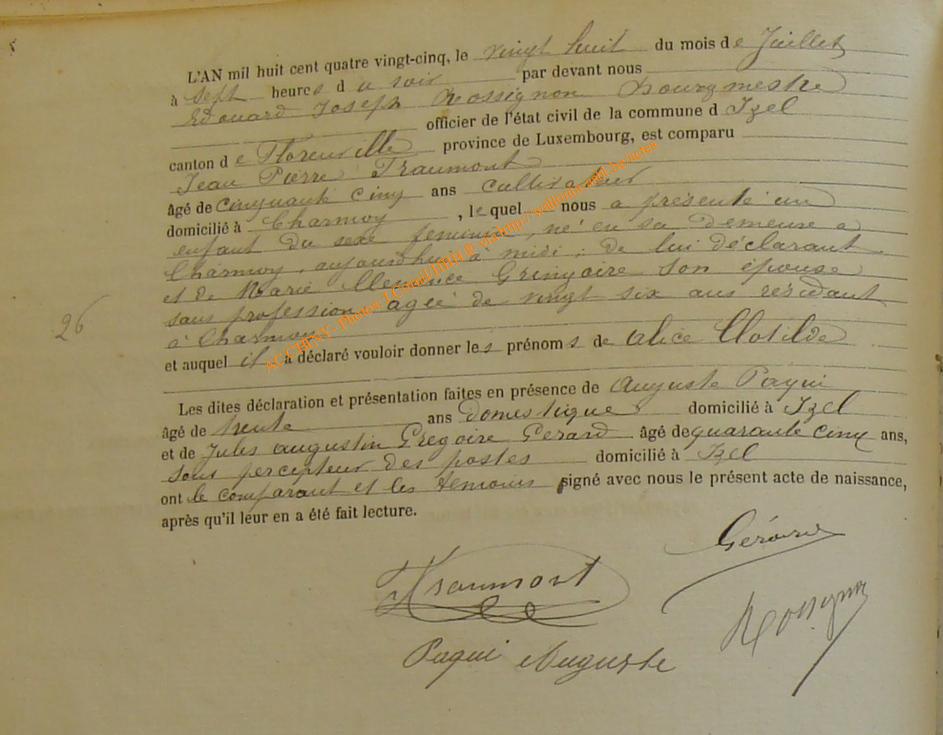 L'AN mil huit cent quatre vingt-cinq, le vingt huit du mois de Juillet
à sept heures du soir par devant nous
Edouard Joseph Rossignon Bourgmestre
officier de l'état civil de la commune d Izel
canton de Florenville province de Luxembourg, est comparu
Jean Pierre Traumont
âgé de cinquante cinq ans cultivateur
domicilié à Charmoy, lequel nous a présenté un
enfant du sexe feminin, né en sa demeure a
Charmoy, aujourd'hui a midi; de lui déclarant
et de Marie Clemence Gringoire son épouse
sans profession agée de vingt six ans résidant
à Charmoy
26
et auquel il a déclaré vouloir donner les prénoms de Alice Clotilde
Les dites déclaration et présentation faites en présence de Auguste Paqui
âgé de trente ans domestique domicilié à Izel
et de Jules Augustin Grégoire Gerard âgé de quarante cinq ans,
sous percepteur des postes domicilié à Izel
ont le comparant et les temoins signé avec nous le présent acte de naissance,
après qu'il leur en a été fait lecture.
Traumont
Paqui Auguste
Rossignon